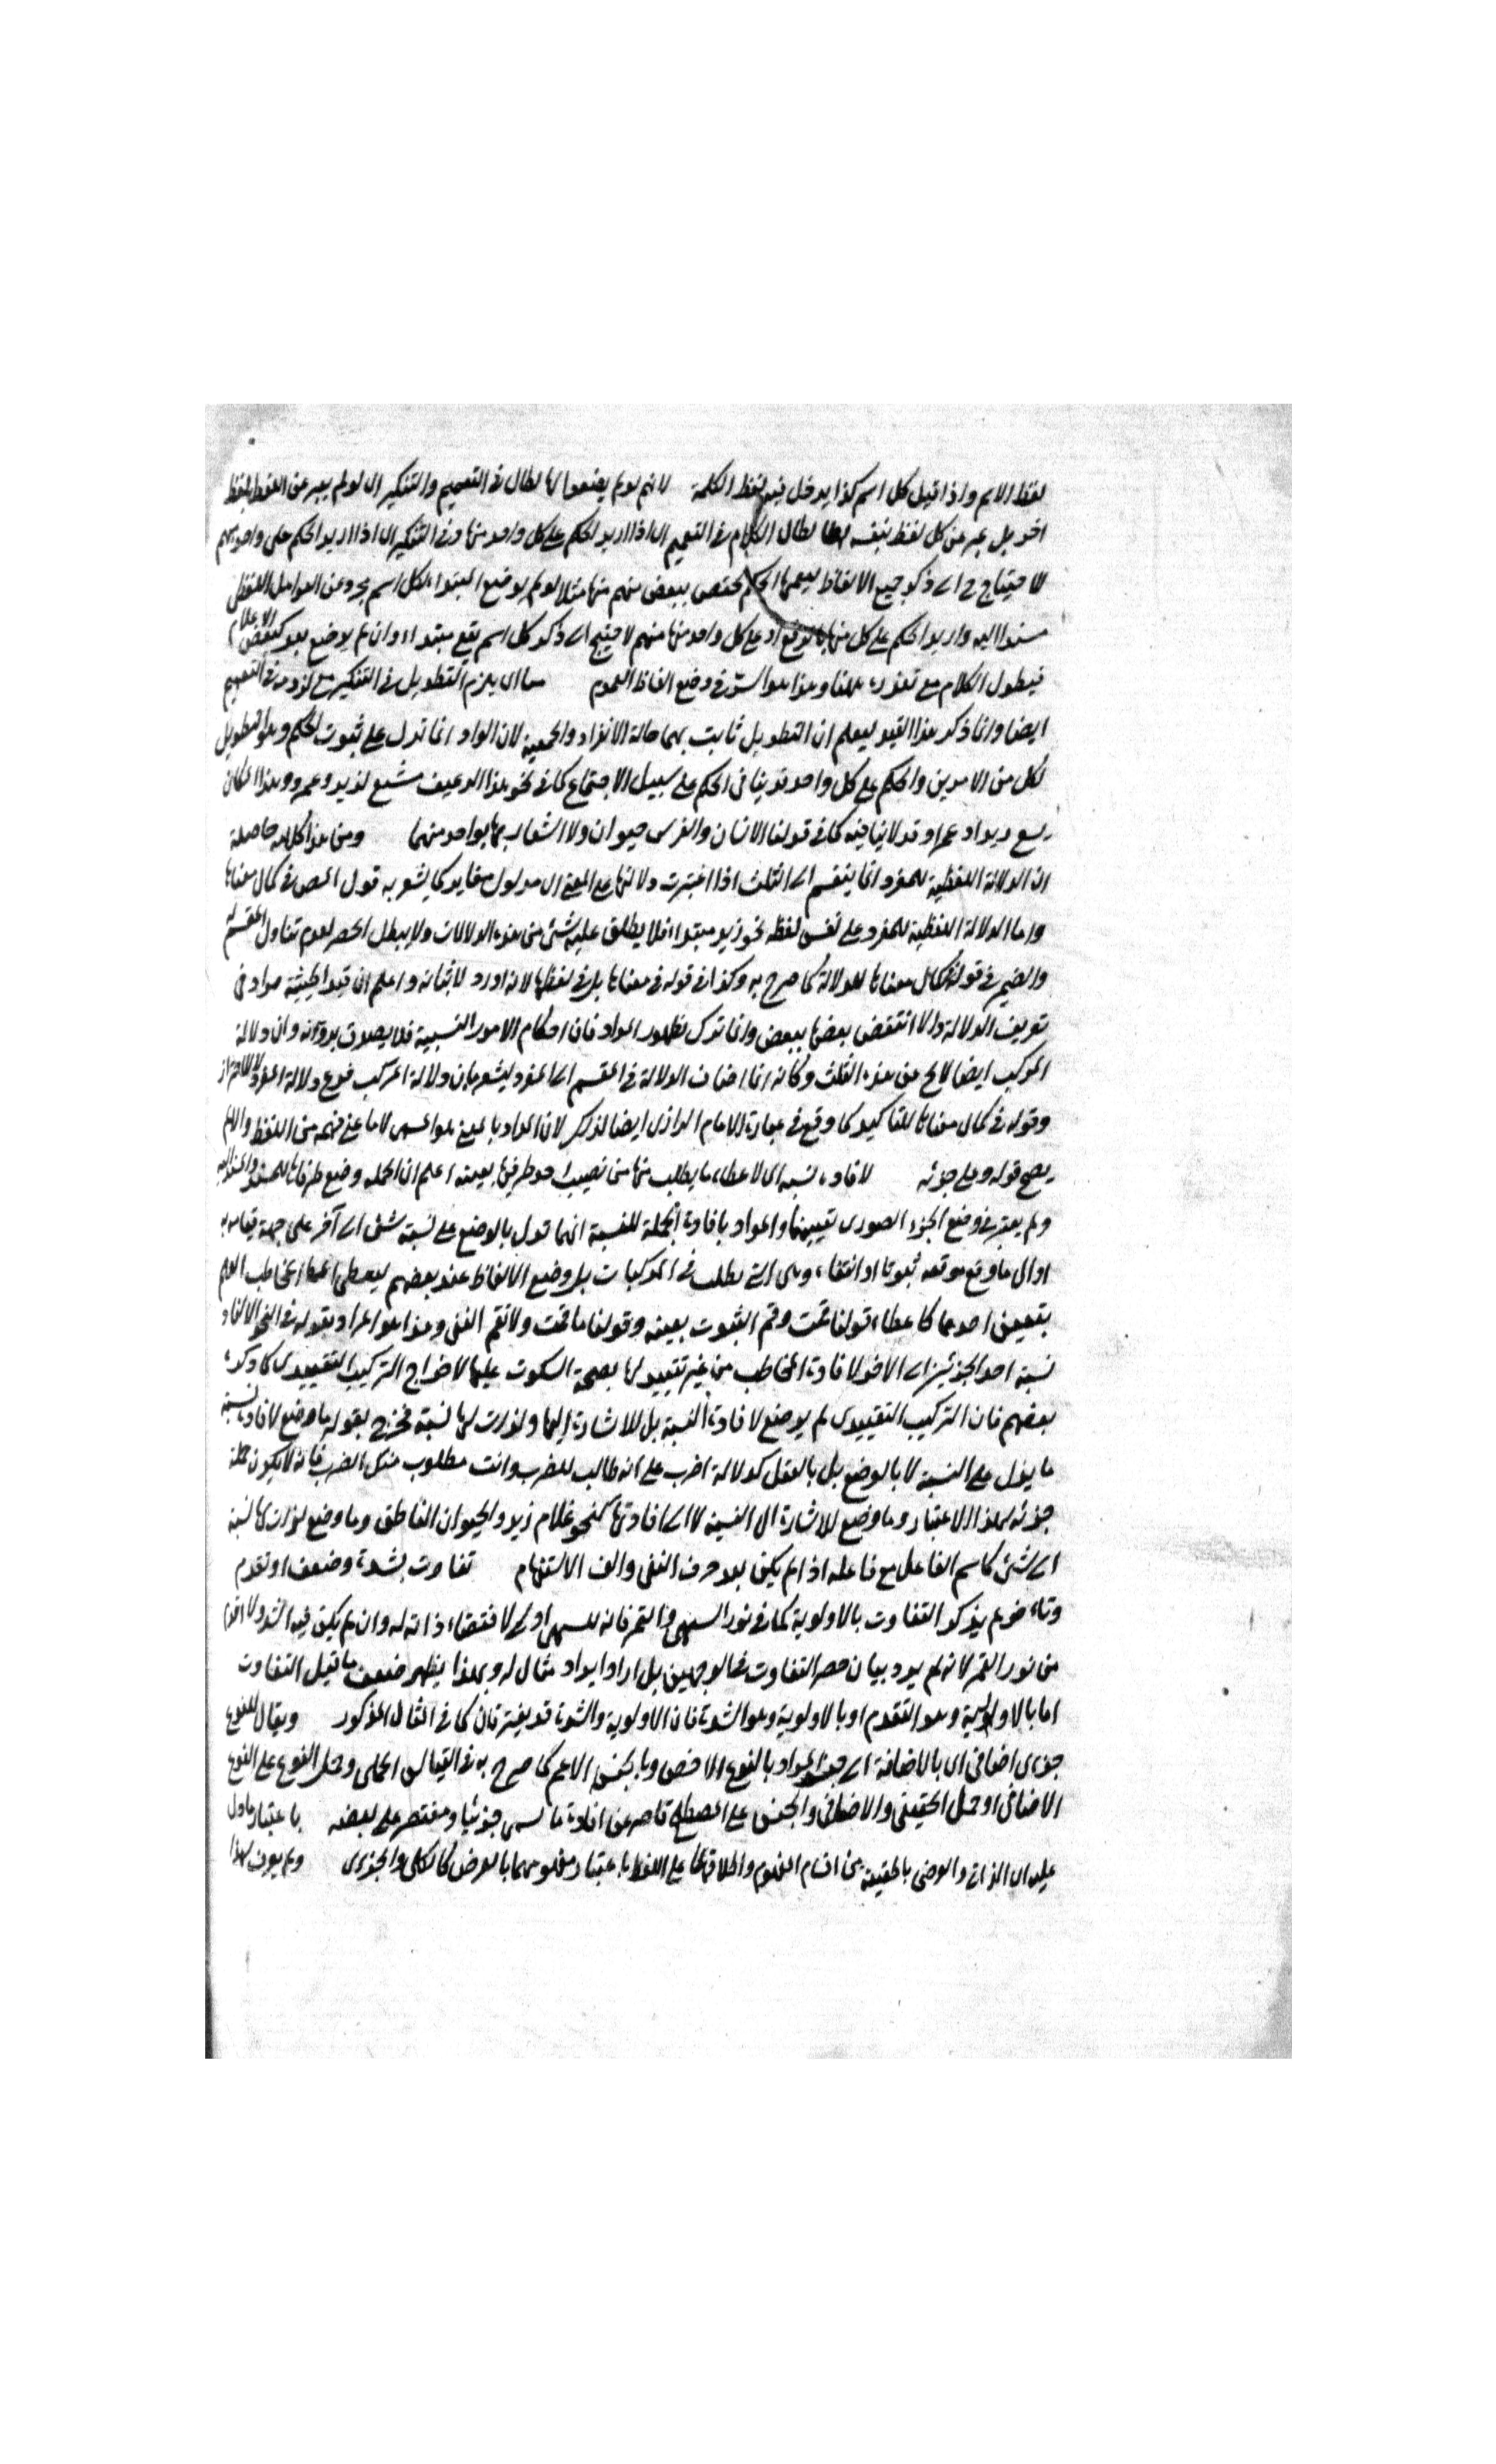 لفظ الاسم واذا قيل كل اسم كذا يدخل فيه لفظ الكلمة لانهم لو لم يضعوا لها لطال في التعميم والتنكير اي لو لم يعبر عن اللفظ بلفظ
اخر بل عبر عن كل لفظ بنفسه لطال الكلام في التعميم اي اذا اريد الحكم على كل واحد منها وفي التنكير اي اذا اريد الحكم على واحد مبهم
لاحتياج ح الى ذكر جميع الالفاظ ليعمها الحكم يختص ببعض مبهم منها مثلا لو لم يوضع المبتداء لكل اسم مجرد عن العوامل اللفظية
مسندا اليه واريد الحكم على كل منها بالرفع او على كل واحد منها مبهم لاحتيج الى ذكر كل اسم يقع مبتداء وان لم يوضع بعد كبعض الاعلام
فيطول الكلام مع تعذره ههنا وهذا هو السر في وضع الفاظ العموم يلزم التطويل في التنكير مع لزومه في التعميم
ايضا وانما ذكر هذا القيد ليعلم ان التطويل ثابت بهما حالة الانفراد والجمعية لان الواو انما تدل على ثبوت الحكم وهو التطويل
لكل من الامرين والحكم على كل واحد قد ينافي الحكم على سبيل الاجتماع كما في نحو هذا الرغيف مشبع لزيد وعمرو وهذا المكان
يسع زيدا وعمرا وقد لا ينافيه كما في قولنا الانسان والفرس حيوان ولا اشعار بها بواحد منهما ومن هذا كله حاصله
ان الدلالة اللفظية للمفرد انما ينقسم الى الثلث اذا اعتبرت دلالتها على المعنى اي مدلول مغاير كما يشعر به قول المص في كمال معناها
واما الدلالة اللفظية للمفرد على نفس لفظه نحو زيد مبتداء فلا يطلق عليه شئ من هذه الدلالات ولا يبطل الحصر لعدم تناول المقسم له
والضمير في قوله كمال معناها للدلالة كما صرح به وكذا في قوله في معناها بل في لفظها لانه اورد لاثباته واعلم ان قيد الحيثية مراد في
تعريف الدلالة والا انتقض بعضها ببعض وانما ترك لظهور المراد فان احكام الامور النسبية فلا يصدق بدونه وان دلالة
المركب ايضا لا يخ عن هذه الثلث وكانه انما اضاف الدلالة في المقسم الى المفرد ليشعر بان دلالة المركب فرع دلالة المفرد لا للاحتراز
وقوله في كمال معناها للتاكيد كما وقع في عبارة الامام الرازي ايضا لذلك لان المراد بالمعنى هو المسمى لا ما عنى فهمه من اللفظ والا لم
يصح قوله وعلى جزئه لافادة نسبة اي لاعطاء ما يطلب منها من نصيب احد طرفيها بعينه اعلم ان الجملة وضع طرفاها للمسند والمسند اليه
ولم يعتبر في وضع الجزء الصوري تعيينهما والمراد بافادة الجملة للنسبة انها تدل بالوضع على نسبة شئ الى آخر على جهة قيامه به
او الى ما وقع موقعه ثبوتا او انتفاء وهي التي يطلب في المركبات بل وضع الالفاظ عند بعضهم ليعطي المخاطب العلم
بتعيين احدهما كاعطاء قولنا قمت وقم الثبوت بعينه وقولنا ما قمت ولا تقم النفي وهذا هو المراد بقوله في النحو الاسناد
نسبة احد الجزئين الى الاخر لافادة المخاطب من غير تقييد لها بصحة السكوت عليها لاخراج التركيب التقييدي كما ذكره
بعضهم فان التركيب التقييدي لم يوضع لافادة النسبة بل للاشارة اليها ولذات لها نسبة فخرج بقوله ما وضع لافادة نسبة
ما يدل على النسبة لا بالوضع بل بالعقل كدلالة اضرب على انه طالب للضرب وانت مطلوب منك الضرب فانه لا يكون جملة
جزئه لهذا الاعتبار وما وضع للاشارة الى النسبة لا الى افادتها كنحو غلام زيد والحيوان الناطق وما وضع لذات لها نسبة
الى شئ كاسم الفاعل مع فاعله اذا لم يكن بعد حرف النفي والف الاستفهام تفاوت بشدة وضعف او تقدم
وتاخر لم يذكر التفاوت بالاولوية كما في نور السهى والقمر فانه للسهى اولى لاقتضاء ذاته له وان لم يكن فيه اشد ولا اقدم
من نور القمر لانه لم يرد بيان حصر التفاوت في الوجهين بل اراد ايراد مثال له وبهذا يظهر ضعف ما قيل التفاوت
اما بالاولية وهو التقدم او بالاولوية وهو الشدة فان الاولوية والشدة قد يفترقان كما في المثال المذكور ويقال للنوع
جزءى اضافي اي بالاضافة الى جنسه المراد بالنوع الاخص وبالجنس الاعم كما صرح به في القياس الحملي وحمل النوع على النوع
الاضافي او حمل الحقيقي والاضافي والجنس على المصطلح قاصر عن افادة ما يسمى جزئيا ومقتصر على بعضه باعتبار ما دل
عليه اي الذاتي والعرضي بالحقيقة من اقسام المفهوم واطلاقهما على اللفظ باعتبار مفهومهما بالعرض كالكلي والجزءي ولم يعرف لهذا